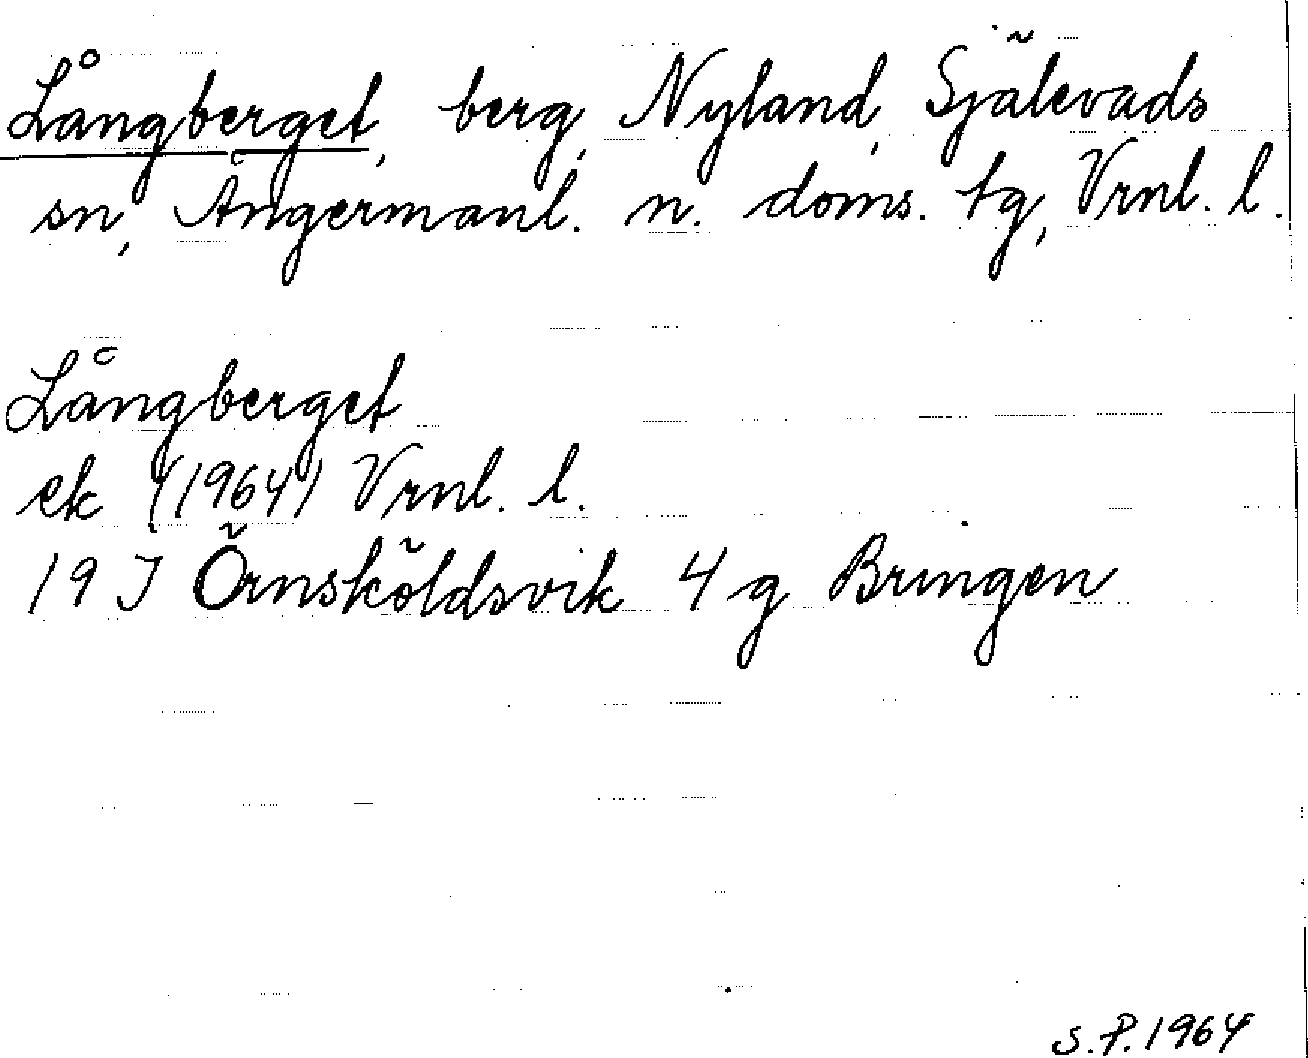 Långberget, berg, Nyland, Själevads
sn, Ångermanl. n. doms. tg, Vrnl. l.
Långberget
ek (1964) Vrnl. l.
19 J Örnsköldsvik 4 g Bringen
S.P. 1964